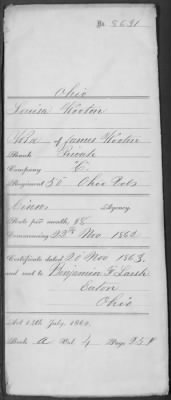 No. 8631
Ohio
Louisa Wooten
Wid. of James Wooten
Rank Private
Company "C"
Regiment 50 Ohio Vols
Cinns Agency
Rate per month, $8
Commencing 22nd Nov 1862
Certificate dated 20 Nov 1863
and sent to Benjamin F. Larsh
Eaton
Ohio
Act 14th July, 1862.
Book A Vol. 4 Page 254